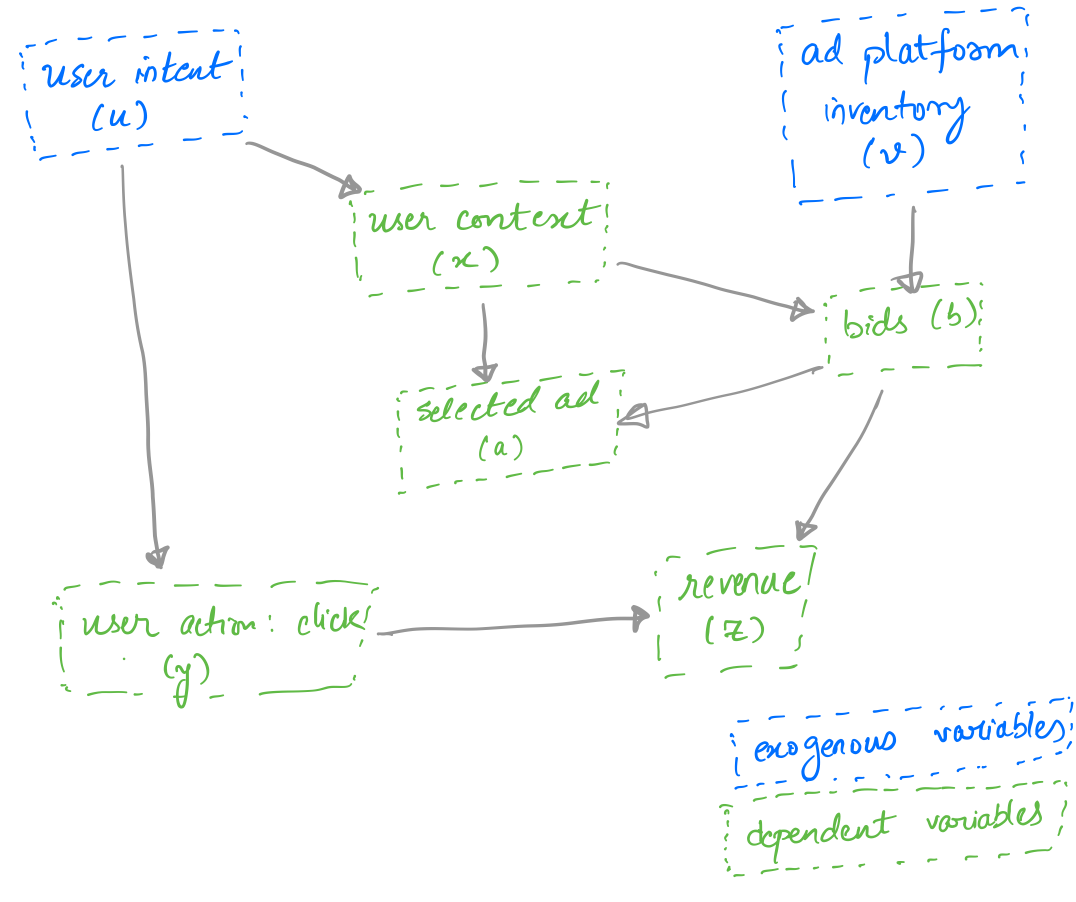 user intent
(u)
ad platform
inventory
(v)
user context
(x)
bids (b)
selected ad
(a)
user action: click
(y)
revenue
(z)
exogenous variables
dependent variables